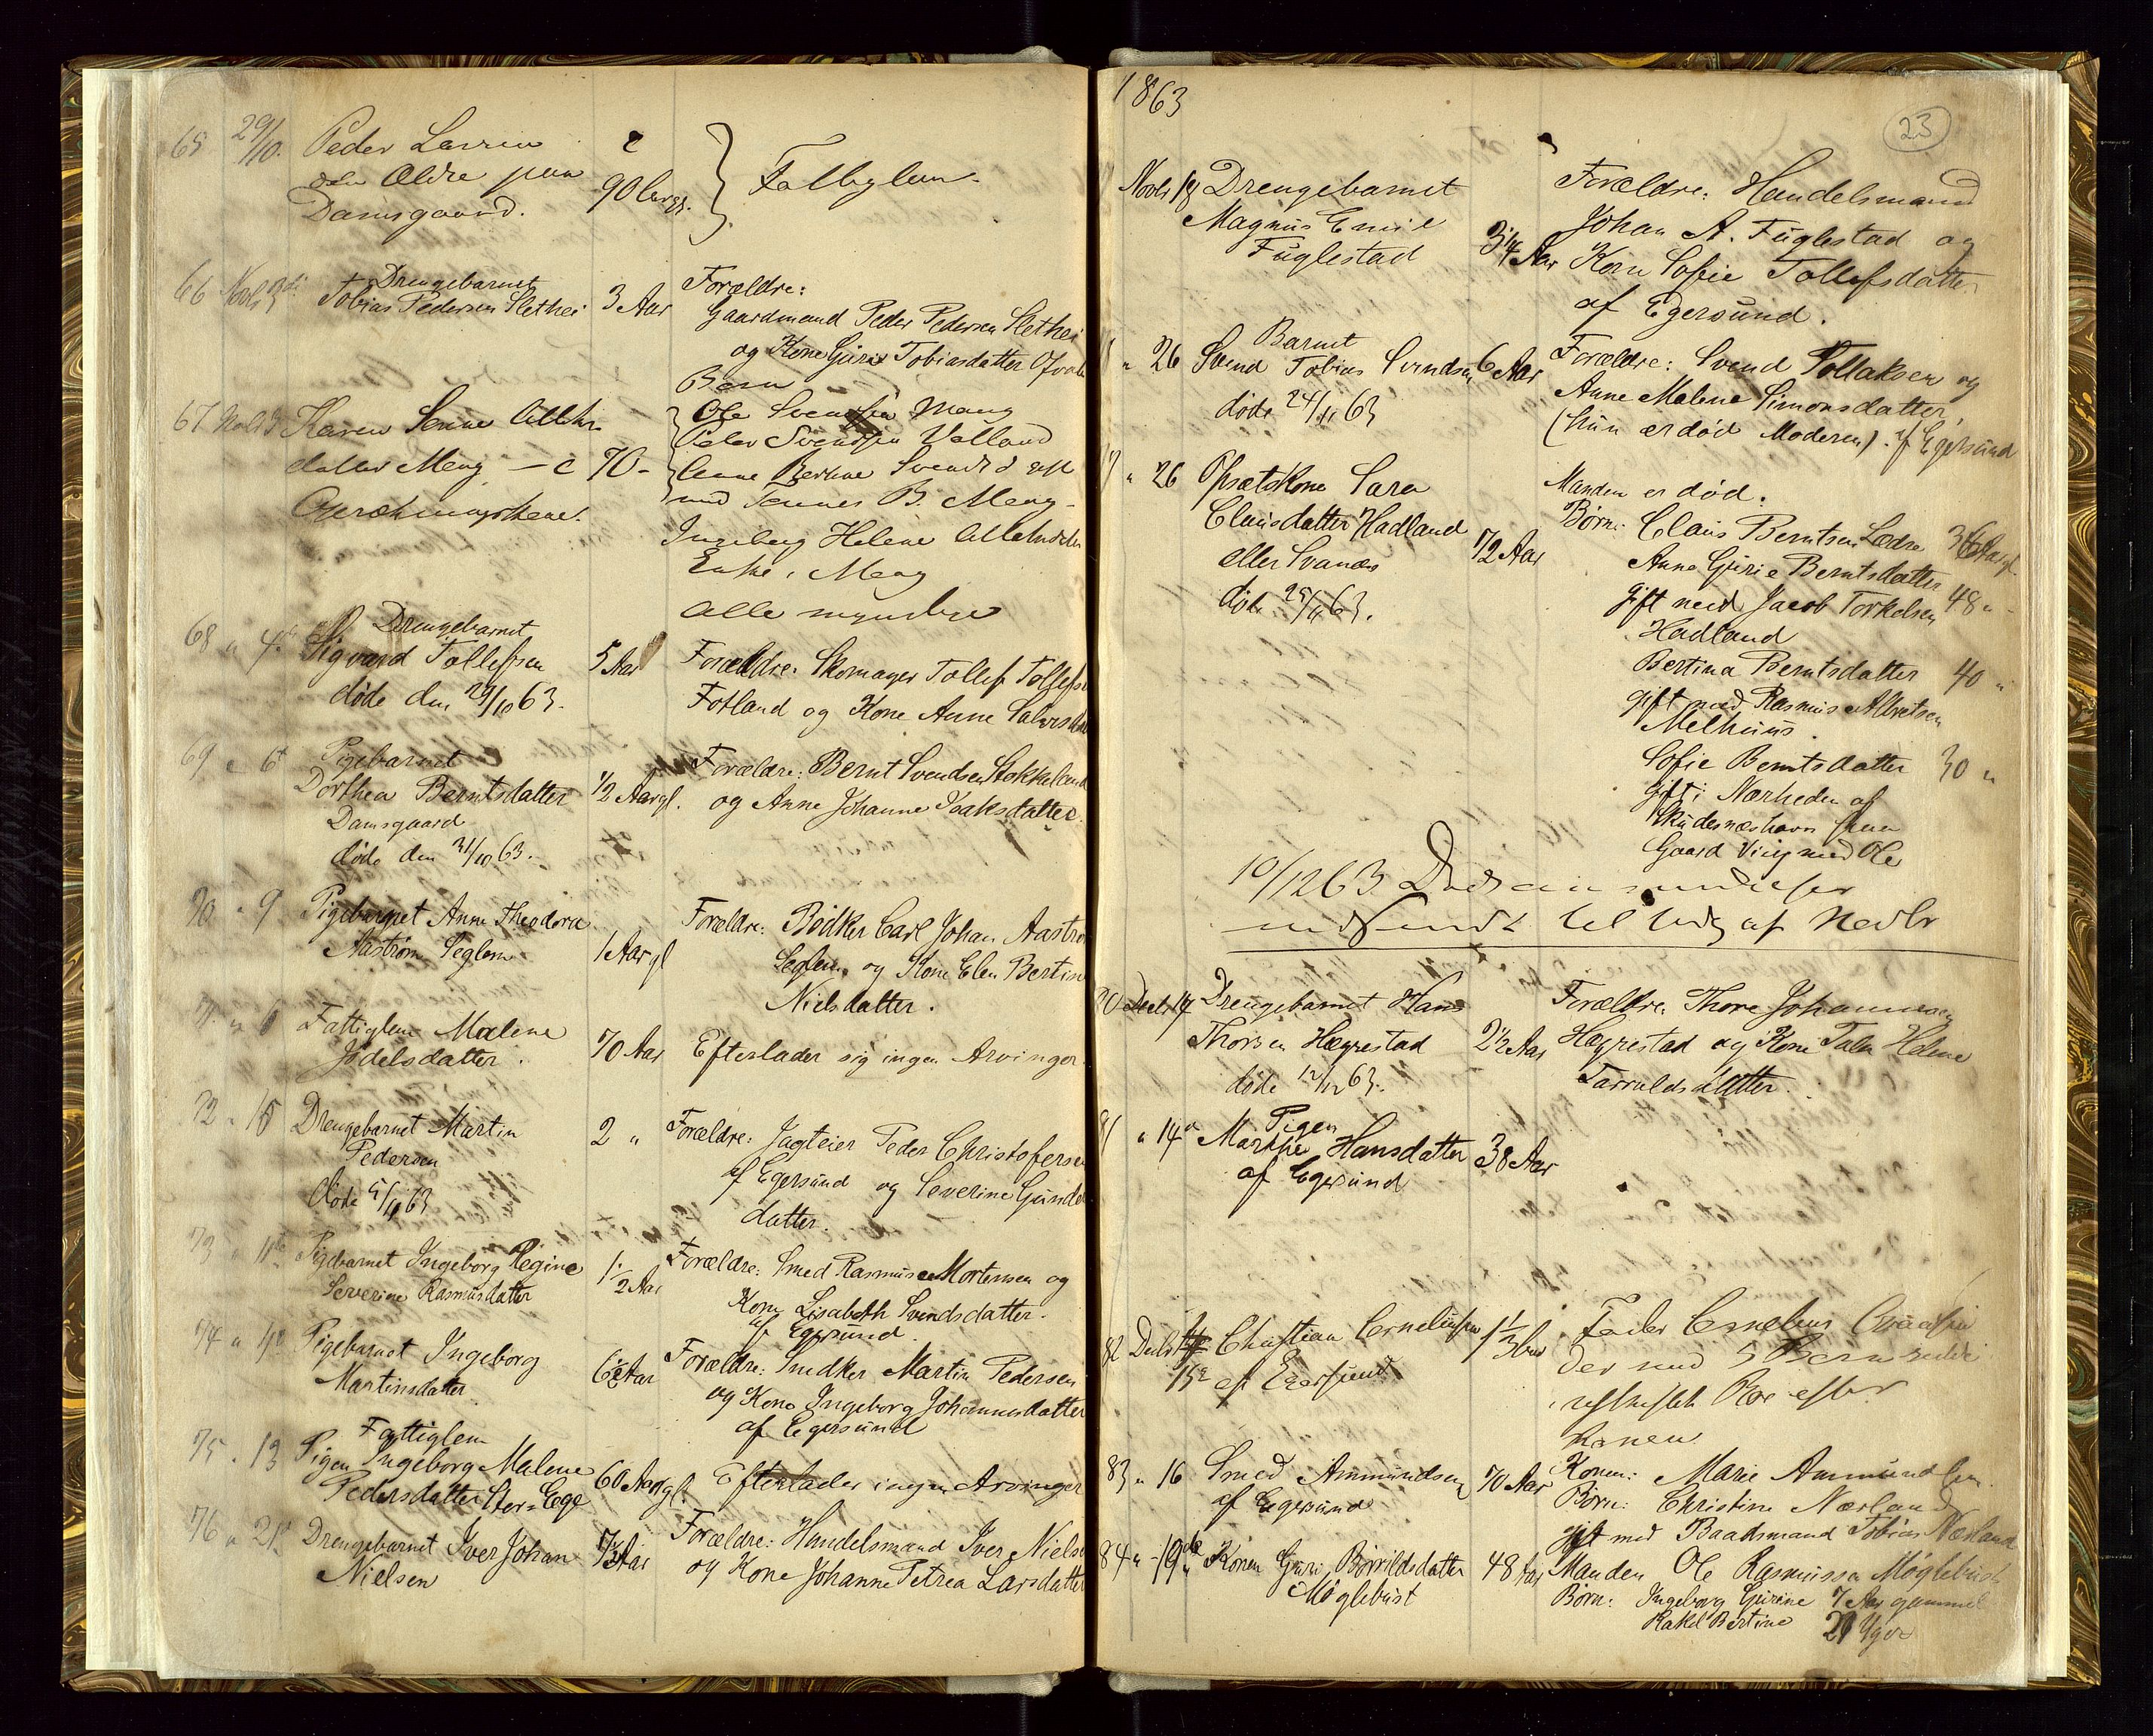 65 29/10. Peder
den Ældre paa
Damsgaard.
90
66 Novbr 3die Drengebarnet
Tobias Pedersen Slethei 3 Aar
Forældre:
Gaardmand Peder Pedersen Slethei
og Kone Guri Tobiasdatter
Børn
67 Karen
datter Meng 70 -
Ole Svendsen Meng
Peder Svendsen Velland
Anne Bertine
med Tønnes B. Meng
Ingeborg Helene
Enke, Meng
alle myndige
68 " 4de Drengebarnet
Sigvard Tollefsen 5 Aar
døde den 29/10 63.
Forældre: Skomager Tollef Tollefs
Fotland og Kone Anne
69 6te Pigebarnet
Dorthea Berntsdatter 1/2 Aargl.
Damsgaard
døde den 31/10 63.
Forældre: Bernt Svendsen Stokkeland
og Anne Johanne Isaksdatter.
70 " 9 Pigebarnet Anne Theodora
Aastrøm Seglem 1 Aar gl
Forældre: Bødker Carl Johan Aastrø
Seglem, og Kone Elen Bertine
Nielsdatter.
Fattiglem Malene
Jødelsdatter. 70 Aar Efterlader sig ingen Arvinger.
72 " 15 Drengebarnet Martin
Pedersen 2 "
døde 5/11 63
Forældre: Jagteier Peder Christofersen
af Egersund og Severine Gunde
datter.
73 Pigebarnet Ingeborg Regine
Severine Rasmusdatter 1 1/2 Aar
Forældre: Smed Rasmus Mortensen og
Kone Lisabeth Svendsdatter.
af Egersund.
74 " Pigebarnet Ingeborg
Martinsdatter 6 1/2 Aar
Forældre: Snedker Martin Pedersen
og Kone Ingeborg Johannesdatter
af Egersund
75 " 13 Fattiglem
Pigen Ingeborg Malene
Pedersdatter Stor-Ege 60 Aar gl. Efterlader ingen Arvinger
76 " 21 Drengebarnet Iver Johan
Nielsen
Forældre: Handelsmand Iver Niels
og Kone Johanne Petrea Larsdatter
1863
23
Novbr 18 Drengebarnet
Magnus Emil
Fuglestad 3 1/4 Aar
Forældre: Handelsmand
Johan A. Fuglestad og
Kone Sofie Tollefsdatter
af Egersund.
" 26 Barnet
Svend Tobias Svendsen 6 Aar
døde 24/11 63
Forældre: Svend Tollaksen og
Anne Malene Simonsdatter,
(hun er død Moderen). af Egersund
" 26 Opsætskone Sara
Clausdatter Hadland
eller Svanes 72 Aar
døde 25/11 63.
Manden er død.
Børn: Claus Berntsen Lædre 36 Aar gl.
Anne Gurie Berntsdatter 48 "
gift med Jacob Torkelsen
Hadland
Bertina Berntsdatter 40 "
gift med Rasmus Albretsen
Melhuus.
Sofie Berntsdatter 30 "
gift i Nærheden af
Skudesnæshavn paa
Gaard Viig med Ole
10/12 63
til af Nedbr
80 Decbr 14 Drengebarnet Hans
Thorsen Hægrestad 2 1/2 Aar
døde 12/12 63.
Forældre: Thore Johannesen
Hægrestad og Kone Talu Helene
Tarraldsdatter.
81 " 14de Pigen
Marthe Hansdatter 38 Aar
af Egersund
82 Decbr
15de Christian Corneliusen
af Egersund
Fader Cornelius
der med 5 Børn
efter
Konen
83 " 16 Smed Ammundsen 70 Aar
af Egersund
Konen: Marie Ammundsen
Børn: Christine Nærland
gift med Baadsmand Tobias Nærland
84 " 19de Konen Guri Børrildsdatter 48 Aar
Møglebust
Manden Ole Rasmussen Møglebust
Børn: Ingeborg Gurine 7 Aar gammel
Rakel Bertine Uger